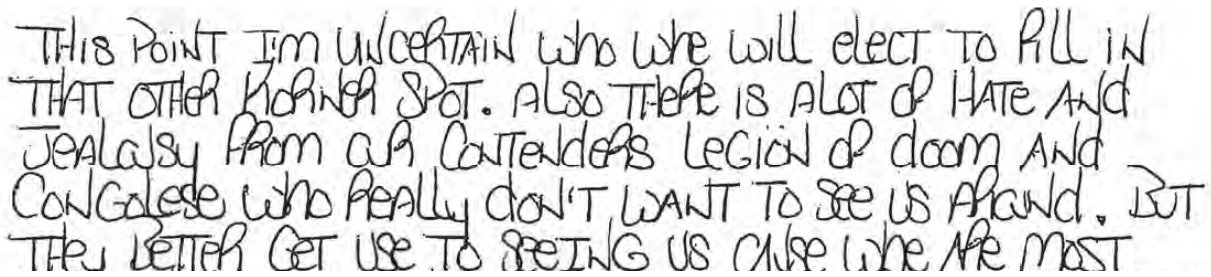 THIS POINT I'M UNCERTAIN WHO WHE WILL ELECT TO FILL IN
THAT OTHER KORNER SPOT. ALSO THERE IS ALOT OF HATE AND
JEALOUSY FROM OUR CONTENDERS LEGION OF DOOM AND
CONGOLESE WHO REALLY DON'T WANT TO SEE US AROUND. BUT
THEY BETTER GET USE TO SEEING US CAUSE WHE ARE MOST